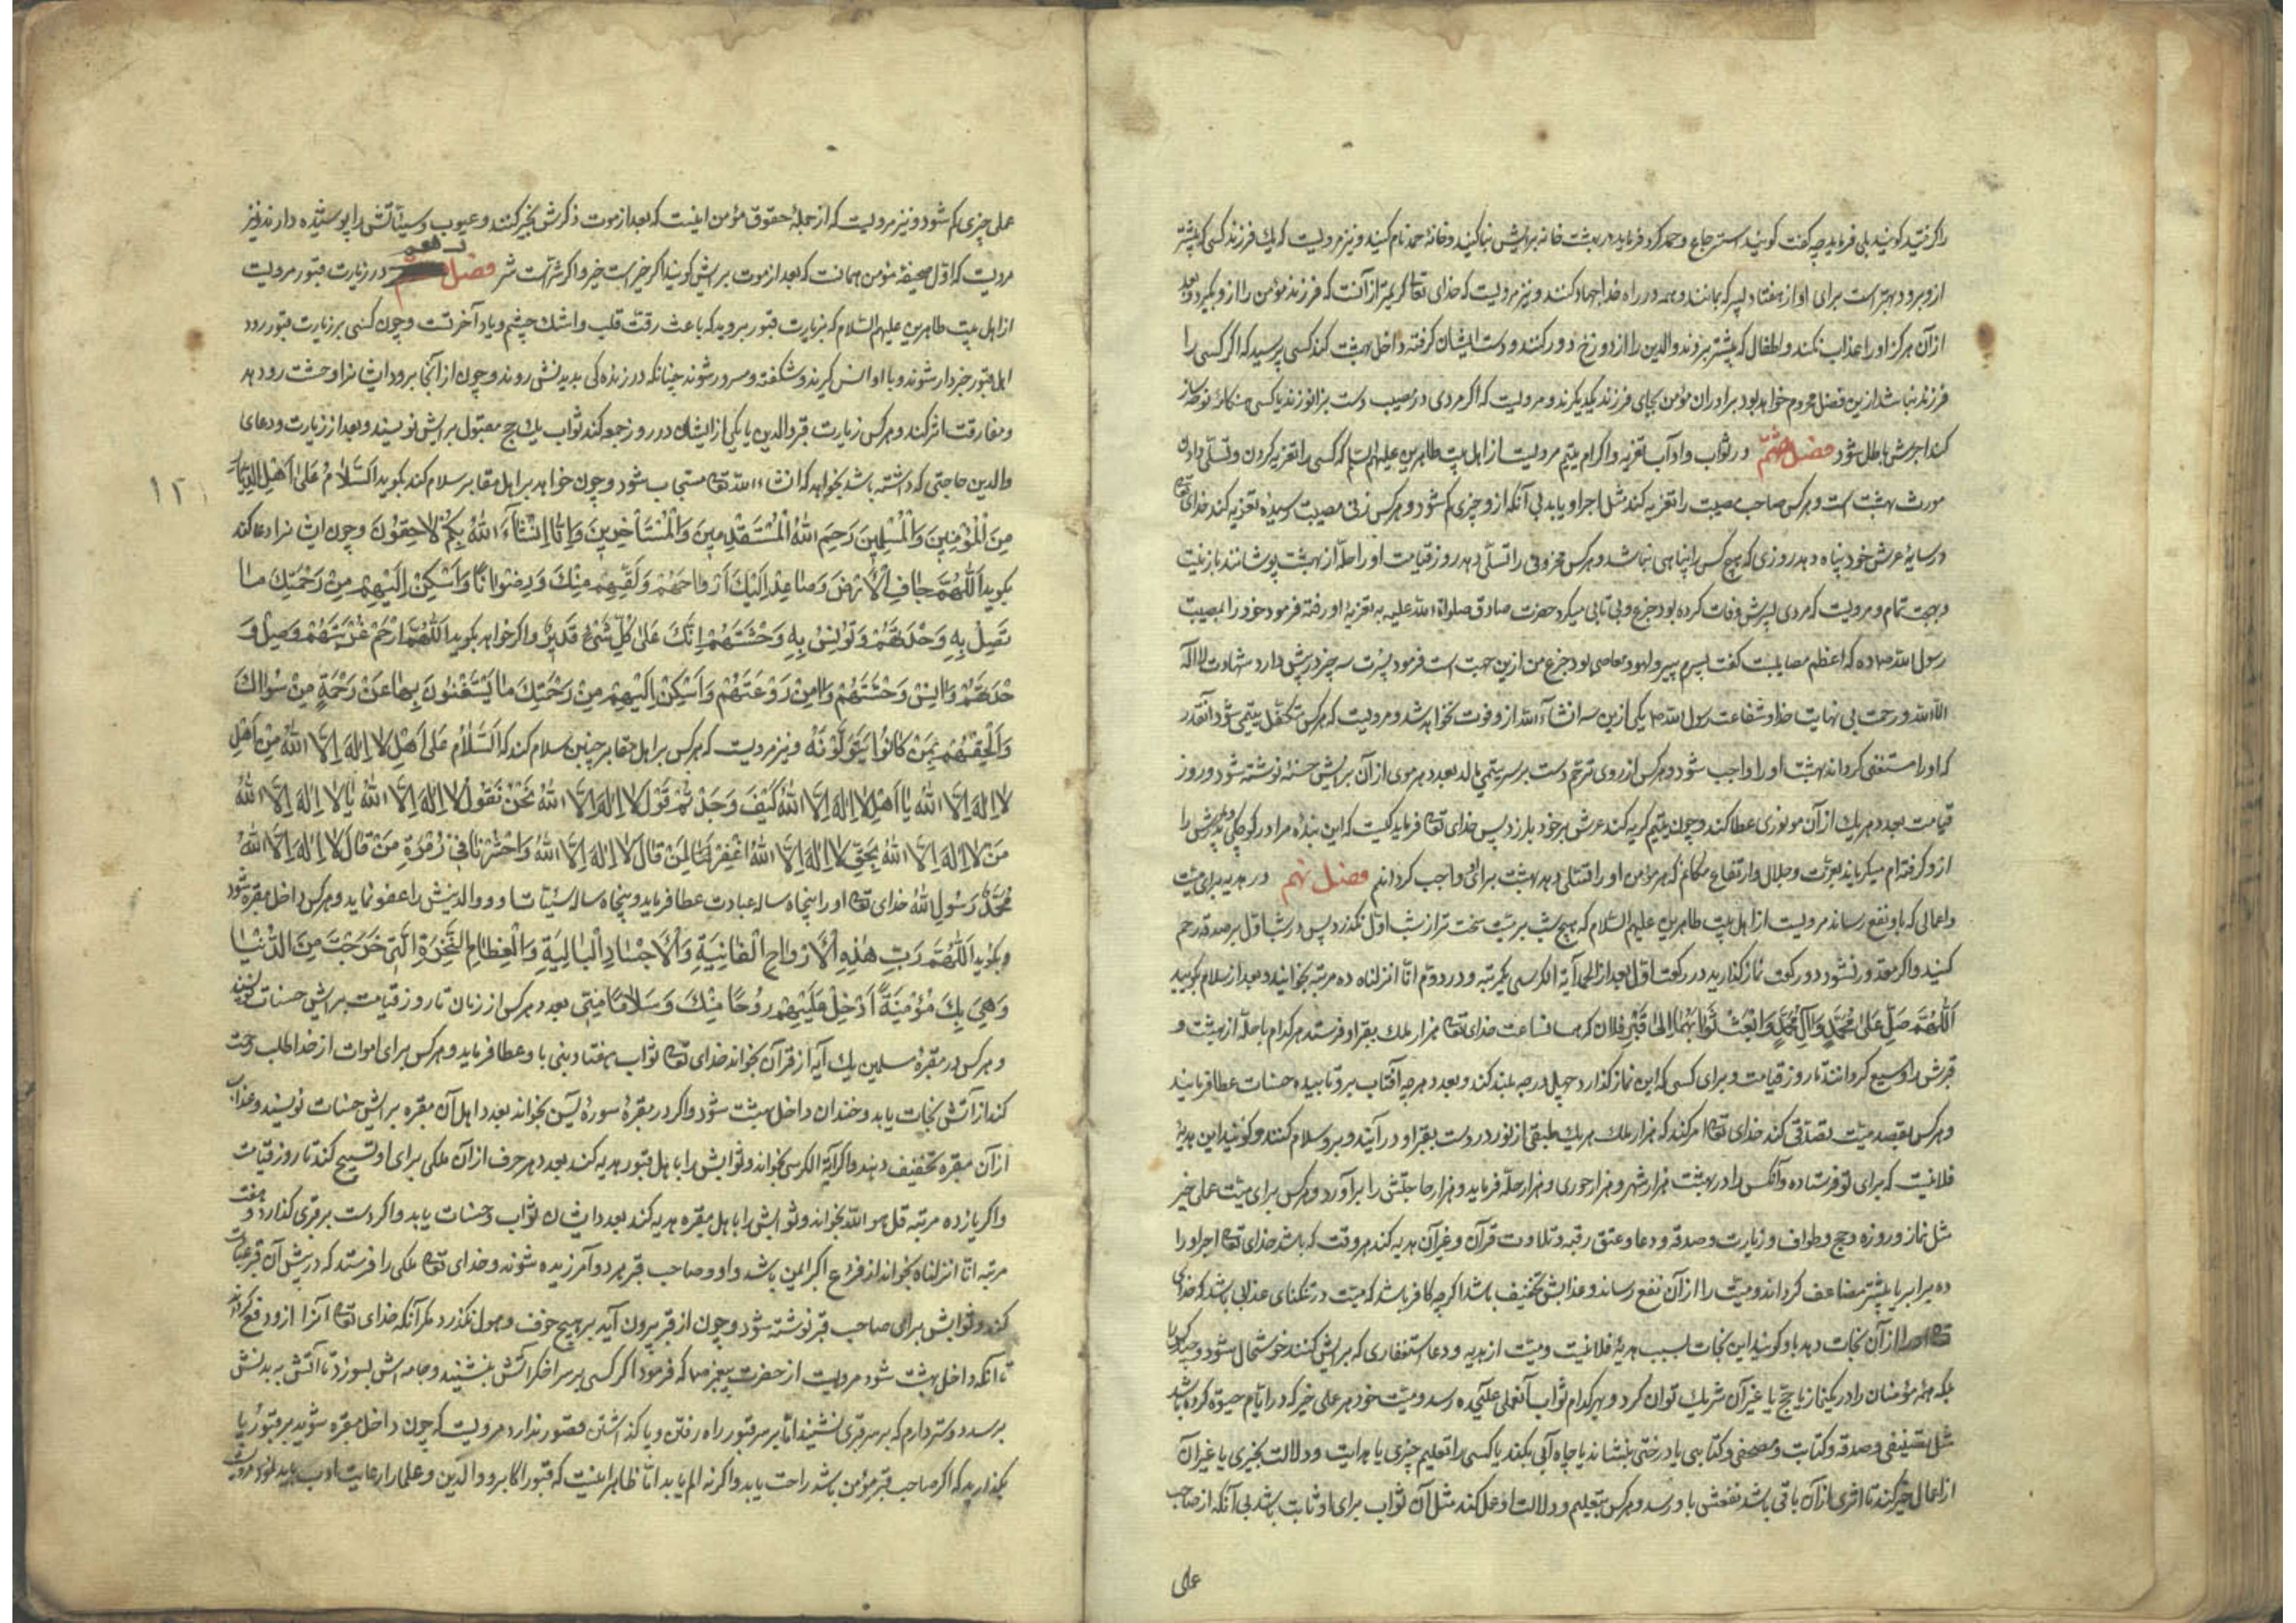 را گرفتید گویند بلی فرماید چه گفت گویند استرجاع و حمد کرد فرماید در بهشت خانه برایش بنا کنید و خانهٔ حمد نام کنید و نیز مرویست که یک فرزند کسی که پیشتر
ازو برود بهتر است برای او از هفتاد پسر که بمانند و همه در راه خدا جهاد کنند و نیز مرویست که خدای تعالی کریمتر از آنست که فرزند مؤمن را ازو بگیرد و بعد
از آن هرگز او را عذاب نکند و اطفال که پیشتر بروند والدین را از دوزخ دور کنند و دست ایشان گرفته داخل بهشت کنند کسی پرسید که اگر کسی را
فرزند نباشد ازین فضل محروم خواهد بود برادران مؤمن بجای فرزند یکدیگرند و مرویست که اگر مردی در مصیبت دست بزانو زند یا کسی هنگامهٔ نوحه ساز
کند اجرش باطل شود فصل هشتم در ثواب و آداب تعزیه و اکرام یتیم مرویست از اهل بیت طاهرین علیهم السلام که کسی را تعزیه کردن و تسلّی دادن
مورث بهشت است و هرکس صاحب مصیبت را تعزیه کند مثل اجر او یابد بی آنکه ازو چیزی کم شود و هرکس زنی مصیبت رسیده تعزیه کند خدای تعالی
در سایهٔ عرش خود پناه دهد روزی که هیچ کس را پناهی نباشد و هرکس محزونی را تسلّی دهد روز قیامت او را حلّه از بهشت پوشانند با زینت
و بهجت تمام و مرویست که مردی پسرش وفات کرده بود جزع و بی تابی میکرد حضرت صادق صلوات الله علیه به تعزیهٔ او رفته فرمود خود را بمصیبت
رسول الله ص ده که اعظم مصایبست گفت پسرم پیرو لهو و معاصی بود جزع من ازین جهت است فرمود پسرت سه چیز در پیش دارد شهادت لا اله
الا الله و رحمت بی نهایت خدا و شفاعت رسول الله ص یکی ازین سه انشاء الله ازو فوت نخواهد شد و مرویست که هرکس متکفّل یتیمی شود آنقدر
که او را مستغنی گرداند بهشت او را واجب شود و هرکس از روی ترحّم دست بر سر یتیمی مالد بعدد هر موی از آن برایش حسنهٔ نوشته شود و روز
قیامت بعدد هر یک از آن مو نوری عطا کند و چون یتیم گریه کند عرش بر خود بلرزد پس خدای تعالی فرماید کیست که این بندهٔ مرا در کوچکی پدرش را
ازو گرفته‌ام میگریاند بعزّت و جلال و ارتفاع مکانم که هر مؤمن او را تسلّی دهد بهشت برای او واجب گردانم فصل نهم در هدیه برای میّت
و اعمالی که باو نفع رساند مرویست از اهل بیت طاهرین علیهم السّلام که هیچ شب بر میّت سخت تر از شب اوّل نگذرد پس در شب اوّل بر صدقه رحم
کنید و اگر مقدور نشود دو رکعت نماز گذارید در رکعت اوّل بعد از الحمد آیة الکرسی یکمرتبه و در دوّم انّا انزلناه ده مرتبه بخوانید و بعد از سلام بگویید
اَللّٰهُمَّ صَلِّ عَلٰی مُحَمَّدٍ وَ اٰلِ مُحَمَّدٍ وَ ابْعَثْ ثَوابَهُمٰا اِلٰی قَبْرِ فلان که همان ساعت خدای تعالی هزار ملک بقبر او فرستد هر کدام با حلّه از بهشت و
قبرش را وسیع گردانند تا روز قیامت و برای کسی که این نماز گذارد چهل درجه بلند کند و بعدد هر چه آفتاب برو تابیده حسنات عطا فرمایند
و هرکس بقصد میّت تصدّقی کند خدای تعالی امر کند که هزار ملک هر یک طبقی از نور در دست بقبر او در آیند و برو سلام کنند و گویند این هدیهٔ
فلانیست که برای تو فرستاده و آنکس را در بهشت هزار شهر و هزار حوری و هزار حلّه فرماید و هزار حاجتش را برآورد و هرکس برای میّت عمل خیر
مثل نماز و روزه و حج و طواف و زیارت و صدقه و دعا و عتق رقبه و تلاوت قرآن و غیر آن هدیه کند هر وقت که باشد خدای تعالی اجر او را
ده برابر یا بیشتر مضاعف گرداند و میّت را از آن نفع رساند و عذابش تخفیف باشد اگر چه کافر باشد که میّت در تنگنای عذابی باشد که خدای
تعالی او را از آن نجات دهد باو گویند این نجات بسبب هدیهٔ فلانیست و میّت از هدیه و دعا و استغفاری که برایش کنند خوشحال شود و
بلکه همه مؤمنان را در یک نماز یا حجّ یا غیر آن شریک توان کرد و بهر کدام ثواب آنعمل علیحده رسد و میّت خود هر عمل خیر که در ایام حیوة کرده باشد
مثل تصنیفی و صدقه و کتابت و مصحفی و کتابی یا درختی بنشاند یا چاه آبی بکند یا کسی را تعلیم چیزی یا هدایت و دلالت بخیری یا غیر آن
از اعمال خیر کند تا اثری از آن باقی باشد نفعش باو رسد و هرکس بتعلیم و دلالت او عمل کند مثل آن ثواب برای او ثابت باشد بی آنکه از صاحب
عمل
عمل چیزی کم شود و نیز مرویست که از جملهٔ حقوق مؤمن اینست که بعد از موت ذکرش بخیر کنند و عیوب و سیّئاتش را پوشیده دارند و نیز
مرویست که اوّل صحیفهٔ مؤمن همانست که بعد از موت برایش گویند اگر خیر است خیر و اگر شرّ است شر فصل دهم در زیارت قبور مرویست
از اهل بیت طاهرین علیهم السّلام که بزیارت قبور بروید که باعث رقّت قلب و اشک چشم و یاد آخرتست و چون کسی بزیارت قبور رود
اهل قبور خبردار شوند و با او انس گیرند و شکفته و مسرور شوند چنانکه در زندگی بدیدنش روند و چون از آنجا برود ایشانرا وحشت رو دهد
و مفارقت اثر کند و هرکس زیارت قبر والدین یا یکی از ایشان در روز جمعه کند ثواب یک حج مقبول برایش نویسند و بعد از زیارت و دعای
والدین حاجتی که داشته باشد بخواهد که انشاء الله تعالی مستجاب شود و چون خواهد بر اهل مقابر سلام کند بگوید اَلسَّلاٰمُ عَلیٰ اَهْلِ الدِّیٰارِ
۱۲۱
مِنَ الْمُؤْمِنینَ وَ الْمُسْلِمینَ رَحِمَ اللهُ الْمُسْتَقْدِمینَ وَ الْمُسْتَأْخِرینَ وَ اِنّٰا اِنْشٰآءَ اللهُ بِکُمْ لاٰحِقُونَ و چون ایشانرا دعا کند
بگوید اَللّٰهُمَّ جٰافِ الْاَرْضَ وَ صٰاعِدْ اِلَیْکَ اَرْوٰاحَهُمْ وَ لَقِّهِمْ مِنْکَ وَ رِضْوٰانًا وَ اَسْکِنْ اِلَیْهِمْ مِنْ رَحْمَتِکَ مٰا
تَصِلُ بِهِ وَحْدَتَهُمْ وَ تُونِسُ بِهِ وَحْشَتَهُمْ اِنَّکَ عَلیٰ کُلِّ شَیْءٍ قَدیرٌ و اگر خواهد بگوید اَللّٰهُمَّ ارْحَمْ غُرْبَتَهُمْ وَصِلْ وَ
حْدَتَهُمْ وَ اٰنِسْ وَحْشَتَهُمْ وَ اٰمِنْ رَوْعَتَهُمْ وَ اَسْکِنْ اِلَیْهِمْ مِنْ رَحْمَتِکَ مٰا یَسْتَغْنُونَ بِهٰا عَنْ رَحْمَةٍ مِنْ سِوٰاکَ
وَ اَلْحِقْهُمْ بِمَنْ کٰانُوا یَتَوَلَّوْنَهُ و نیز مرویست که هرکس بر اهل مقابر چنین سلام کند که اَلسَّلاٰمُ عَلیٰ اَهْلِ لاٰ اِلٰهَ اِلَّا اللهُ مِنْ اَهْلِ
لاٰ اِلٰهَ اِلَّا اللهُ یٰا اَهْلَ لاٰ اِلٰهَ اِلَّا اللهُ کَیْفَ وَجَدْتُمْ قَوْلَ لاٰ اِلٰهَ اِلَّا اللهُ نَحْنُ نَقُولُ لاٰ اِلٰهَ اِلَّا اللهُ یٰا لاٰ اِلٰهَ اِلَّا اللهُ
مِنْ لاٰ اِلٰهَ اِلَّا اللهُ بِحَقِّ لاٰ اِلٰهَ اِلَّا اللهُ اغْفِرْ لِمَنْ قٰالَ لاٰ اِلٰهَ اِلَّا اللهُ وَ احْشُرْنٰا فی زُمْرَةِ مَنْ قٰالَ لاٰ اِلٰهَ اِلَّا اللهُ
مُحَمَّدٌ رَسُولُ اللهُ خدای تعالی او را پنجاه ساله عبادت عطا فرماید و پنجاه ساله سیّئات او و والدینش را عفو نماید و هرکس داخل مقبره شود
و بگوید اَللّٰهُمَّ رَبِّ هٰذِهِ الْاَرْوٰاحِ الْفٰانِیَةِ وَ الْاَجْسٰادِ الْبٰالِیَةِ وَ الْعِظٰامِ النَّخِرَةِ الَّتی خَرَجَتْ مِنَ الدُّنْیٰا
وَ هِیَ بِکَ مُؤْمِنَةٌ اَدْخِلْ عَلَیْهِمْ رَوْحًا مِنْکَ وَ سَلاٰمًا مِنّی بعدد هرکس از زمان تا روز قیامت برایش حسنات نویسند
و هرکس در مقبرهٔ مسلمین یک آیه از قرآن بخواند خدای تعالی ثواب هفتاد نبی باو عطا فرماید و هرکس برای اموات از خدا طلب رحمت
کند از آتش نجات یابد و خندان داخل بهشت شود و اگر در مقبرهٔ سورهٔ یس بخواند بعدد اهل آن مقبره برایش حسنات نویسند و عذاب
از آن مقبره تخفیف دهند و اگر آیة الکرسی بخواند و ثوابش را باهل قبور هدیه کند بعدد هر حرف از آن ملکی برای او تسبیح کند تا روز قیامت
و اگر یازده مرتبه قل هو الله بخواند و ثوابش را باهل مقبره هدیه کند بعدد ایشان ثواب و حسنات یابد و اگر دست بر قبری گذارد و هفت
مرتبه انّا انزلناه بخواند از فزع اکبر ایمن باشد و او و صاحب قبر هر دو آمرزیده شوند و خدای تعالی ملکی را فرستد که در پیش آن قبر عبادت
کند و ثوابش برای صاحب قبر نوشته شود و چون از قبر بیرون آید بر هیچ خوف و هول نگذرد مگر آنکه خدای تعالی آنرا ازو دفع گرداند
تا آنکه داخل بهشت شود مرویست از حضرت پیغمبر ص که فرمود اگر کسی بر سر اخگر آتش بنشیند و جامه‌اش بسوزد تا آتش به بدنش
برسد دوستر دارم که بر سر قبری نشیند امّا بر سر قبور راه رفتن و پا گذاشتن قصور ندارد مرویست که چون داخل مقبره شوید بر قبور پا
بگذارید که اگر صاحب قبر مؤمن باشد راحت یابد و اگر نه الم یابد امّا ظاهر اینست که قبور اکابر و والدین و علما را رعایت ادب باید نمود